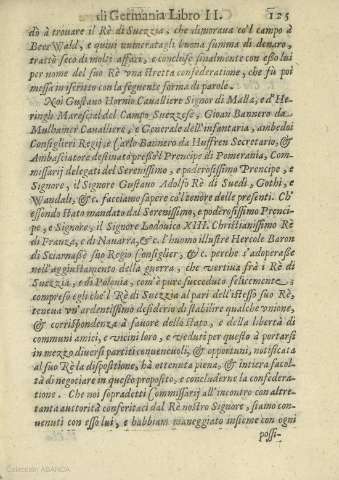 di Germania Libro II. 125
dò à trouare il Rè di Suezzia, che dimoraua co'l campo à
Beer Wald, e quiui numeratagli buona summa di denaro,
trattò seco di molti affari, e concluse finalmente con esso lui
per nome del suo Rè vna stretta confederatione, che fù poi
messa in iscritto con la seguente forma di parole.
Noi Gustauo Hornio Caualliere Signor di Malla, e d'He-
ringh Marescial del Campo Suezzese, Gioan Bannero da
Mulhamer Caualliere, e Generale dell'infantaria, ambedoi
Consiglieri Regij, e Carlo Bannero da Huffren Secretario, &
Ambasciatore destinato presso'l Prencipe di Pomerania, Com-
missarij delegati del Serenissimo, e poderosissimo Prencipe, e
Signore, il Signore Gustauo Adolfo Rè di Suedi, Gothi, e
Wandali, & c. facciamo sapere co'l tenore delle presenti. Ch'
essendo stato mandato dal Serenissimo, e poderosissimo Prenci-
pe, e Signore, il Signore Lodouico XIII. Christianissimo Rè
di Franza, e di Nauarra, & c. l'huomo illustre Hercole Baron
di Sciarnasè suo Regio Consiglier, & c. perche s'adoperasse
nell'aggiustamento della guerra, che vertiua frà i Rè di
Suezzia, e di Polonia, com'è pure succeduto felicemente;
compreso egli che'l Rè di Suezzia al pari dell'istesso suo Rè,
teneua vn'ardentissimo desiderio di stabilire qualche vnione,
& corrispondenza à fauore dello stato, e della libertà di
communi amici, e vicini loro, e vedutì per questo à portarsi
in mezzo diuersi partiti conueneuoli, & opportuni, notificata
al suo Rè la dispositione, hà ottenuta piena, & intiera facol-
tà di negociare in questo proposito, e concluderne la confedera-
tione. Che noi sopradetti Commissarij all'incontro con altre-
tanta auttorità conferitaci dal Rè nostro Signore, siamo con-
uenuti con esso lui, e habbiam maneggiato insieme con ogni
possi-
Colección ABANCA